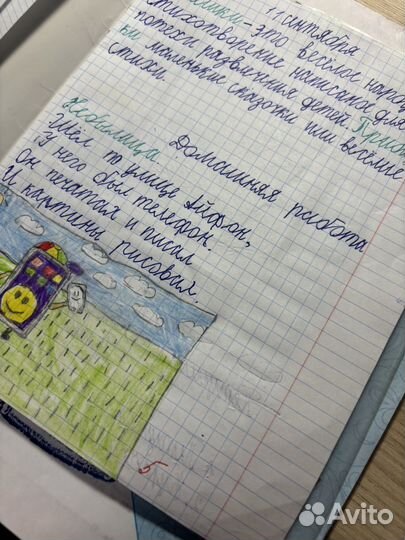 11 сентября
это весёлое народ
стихотворение написаное для
потехи развличения детей. При
ки маленькие сказочки или весёлые
стихи.
Домашняя работа
Небылица.
Шёл по улице Айфон,
У него был телефон.
Он печатал и писал
И картины рисовал.
5
Avito